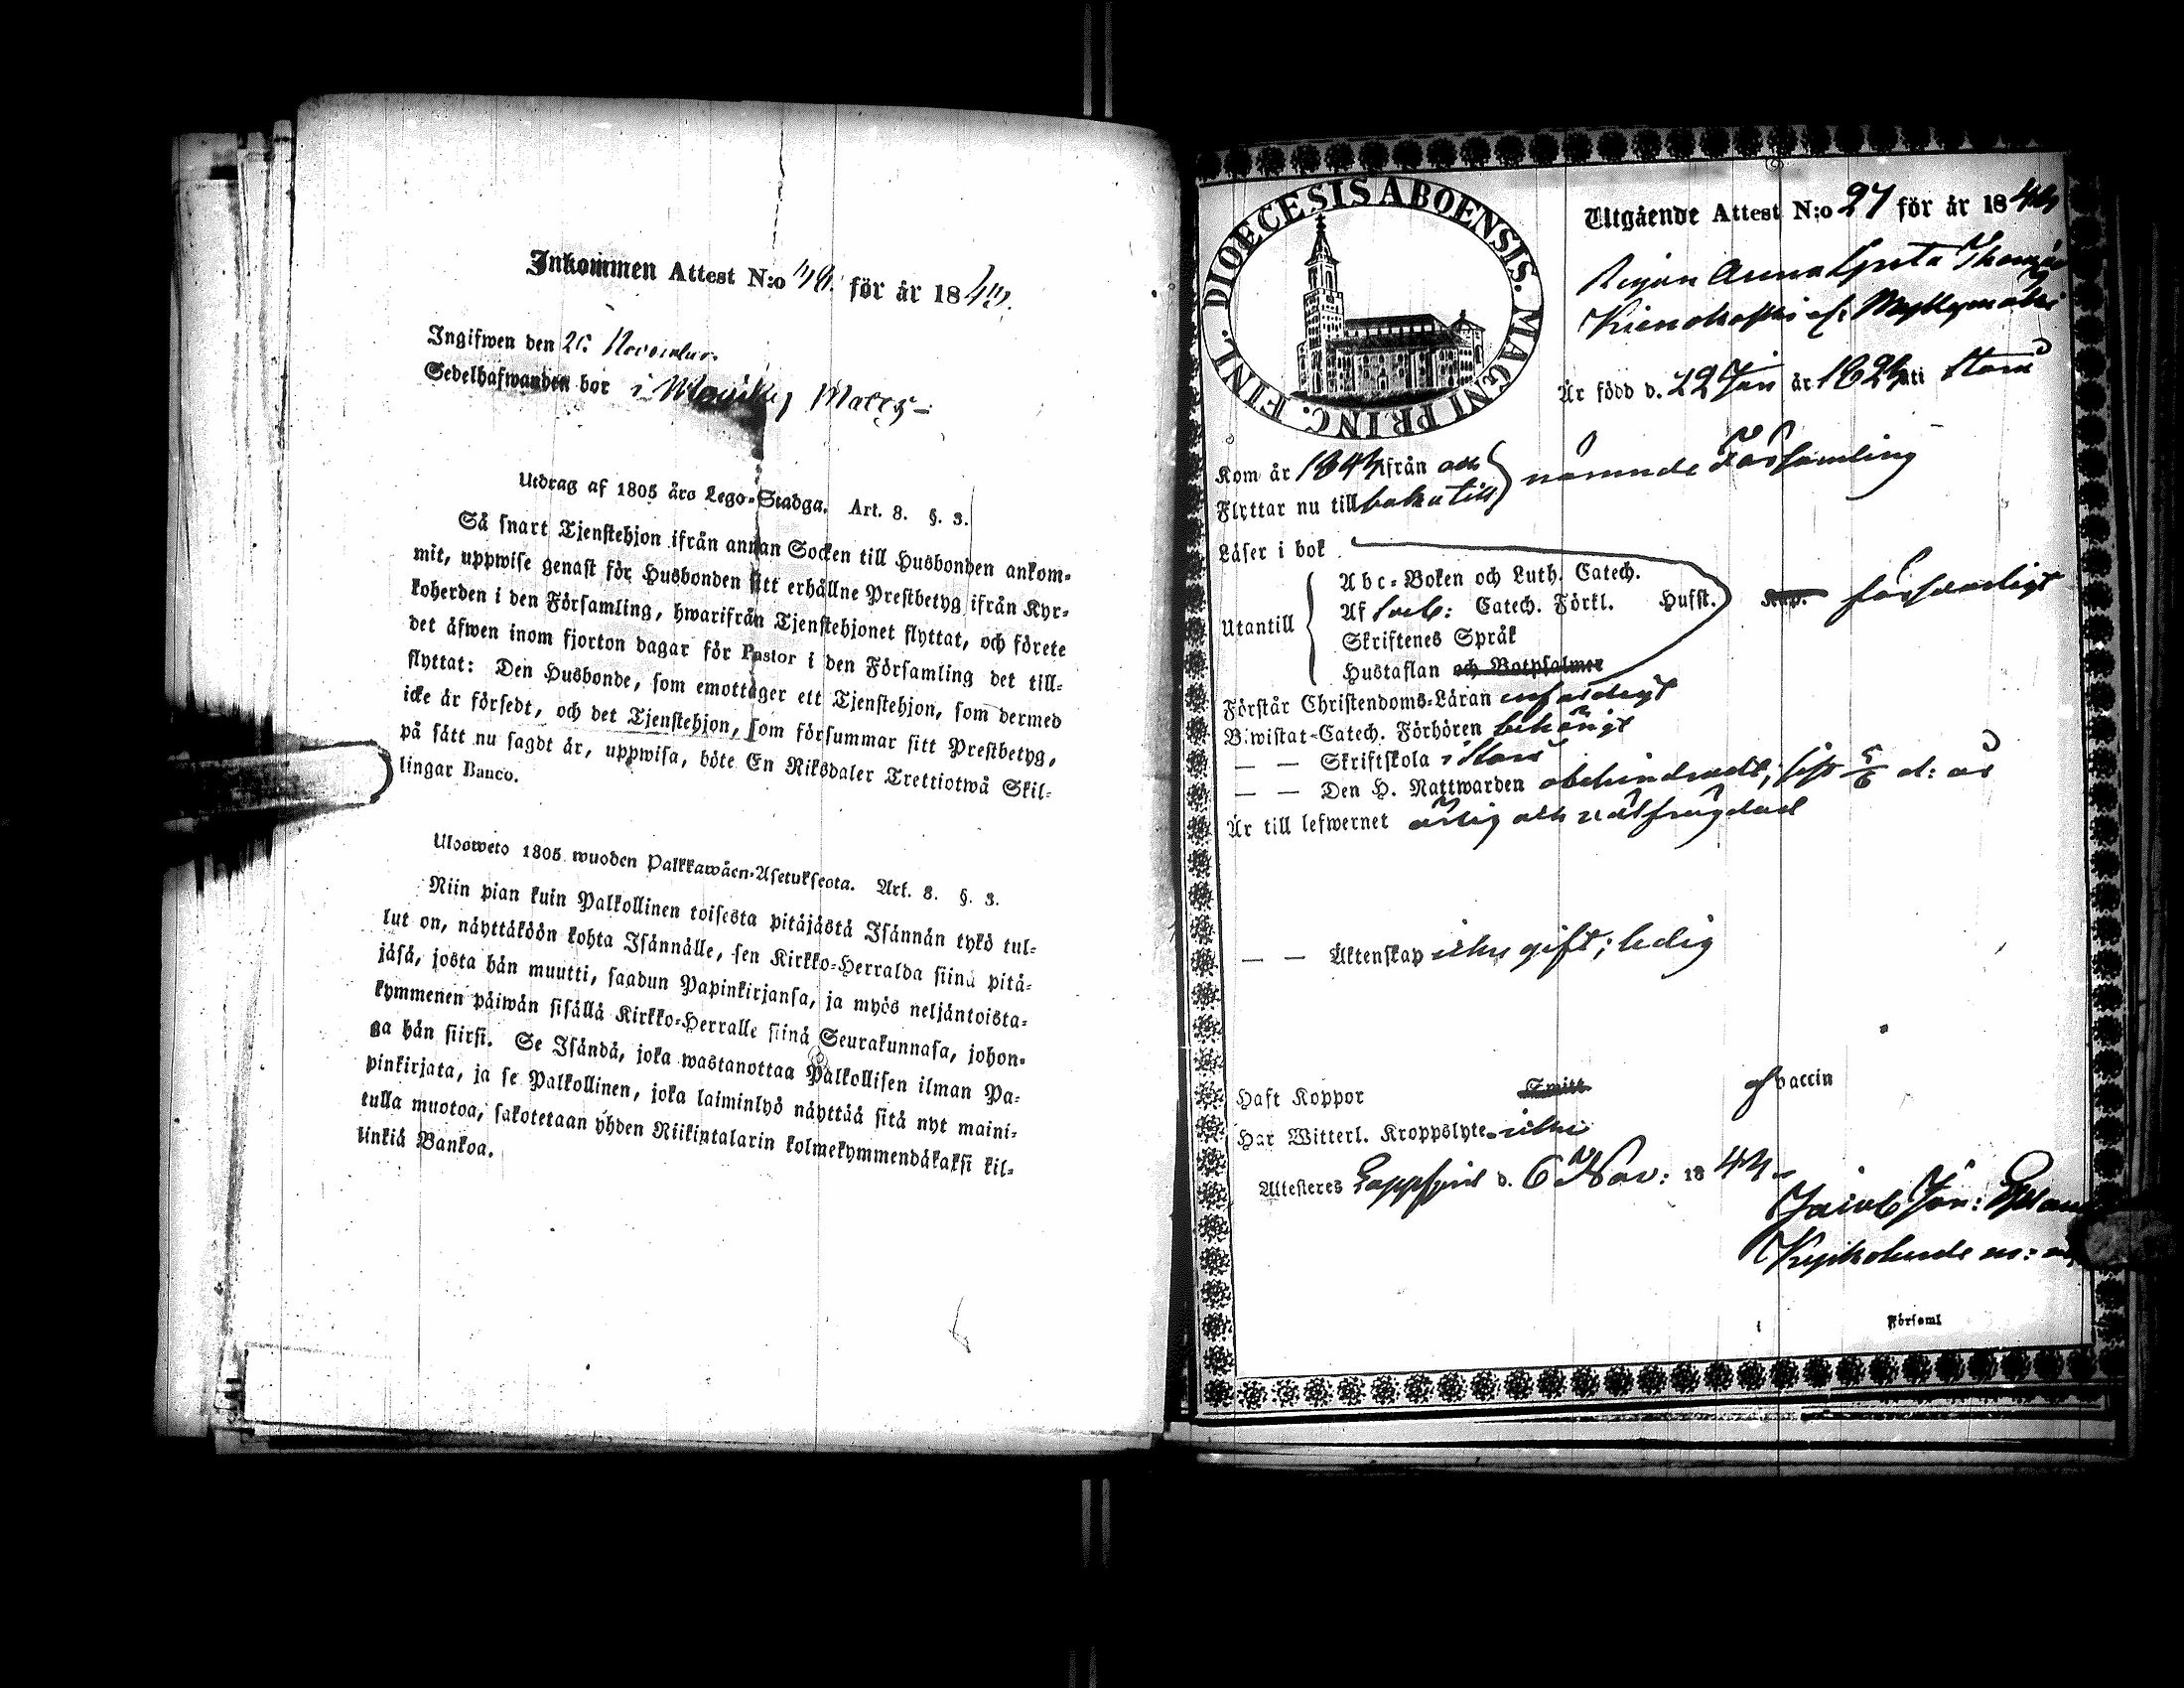 Inkommen Attest N:o 48. för år 1844.
Ingifwen den 20 November.
Sedelhafwanden bor i
Utdrag af 1805 års Lego-Stadga. Art. 8. §. 3.
Så snart Tjenstehjon ifrån annan Socken till Husbonden ankom-
mit, uppwise genast för Husbonden sitt erhållne Prestbetyg ifrån Kyr-
koherden i den Församling, hwarifrån Tjenstehjonet flyttat, och förete
det äfwen inom fjorton dagar för Pastor i den Församling det till-
flyttat: Den Husbonde, som emottager ett Tjenstehjon, som dermed
icke är försedt, och det Tjenstehjon, som försummar sitt Prestbetyg,
på sätt nu sagdt är, uppwisa, böte En Riksdaler Trettiotwå Skil-
lingar Banco.
Ulosweto 1805 wuoden Palkkawäen-Asetuksesta. Art. 8. §. 3.
Niin pian kuin Palkollinen toisesta pitäjästä Isännän tykö tul-
lut on, näyttäköön kohta Isännälle, sen Kirkko-Herralda siinä pitä-
jäsä, josta hän muutti, saadun Papinkirjansa, ja myös neljäntoista-
kymmenen päiwän sisällä Kirkko-Herralle siinä Seurakunnasa, johon-
ga hän siirsi. Se Isändä, joka wastanottaa Palkollisen ilman Pa-
pinkirjata, ja se Palkollinen, joka laiminlyö näyttää sitä nyt maini-
tulla muotoa, sakotetaan yhden Riikintalarin kolmekymmendäkaksi kil-
linkiä Bankoa.
DIOECESIS ABOENSIS. MAGNI PRINC. FINL.
Utgående Attest N:o 27 för år 1844
Pigan Anna Greta Thomasd
Är född d. 22 Jan år 1824 uti Storå
Kom år 1843 ifrån och } nämnde Församling
Flyttar nu till baka till
Läser i bok
Utantill { Abc-Boken och Luth. Catech.
Af Sveb: Catech. Förkl. Hufst. Kap. försvarligt
Skriftenes Språk
Hustaflan och Botpsalmer
Förstår Christendoms-Läran enfaldigt
Biwistat Catech. Förhören behörigt
— — Skriftskola i Storå
— — Den H. Nattwarden obehindradt; sist 5/6 d: år
Är till lefwernet ärlig och välfrägdad
— — Äktenskap icke gift; ledig
Haft Koppor Smitt. af vaccin
Har Witterl. Kroppslyte. icke
Attesteras Lappfjerd d. 6 Nov: 1844.
Jacob Joh:
Kyrkoherde
Församl